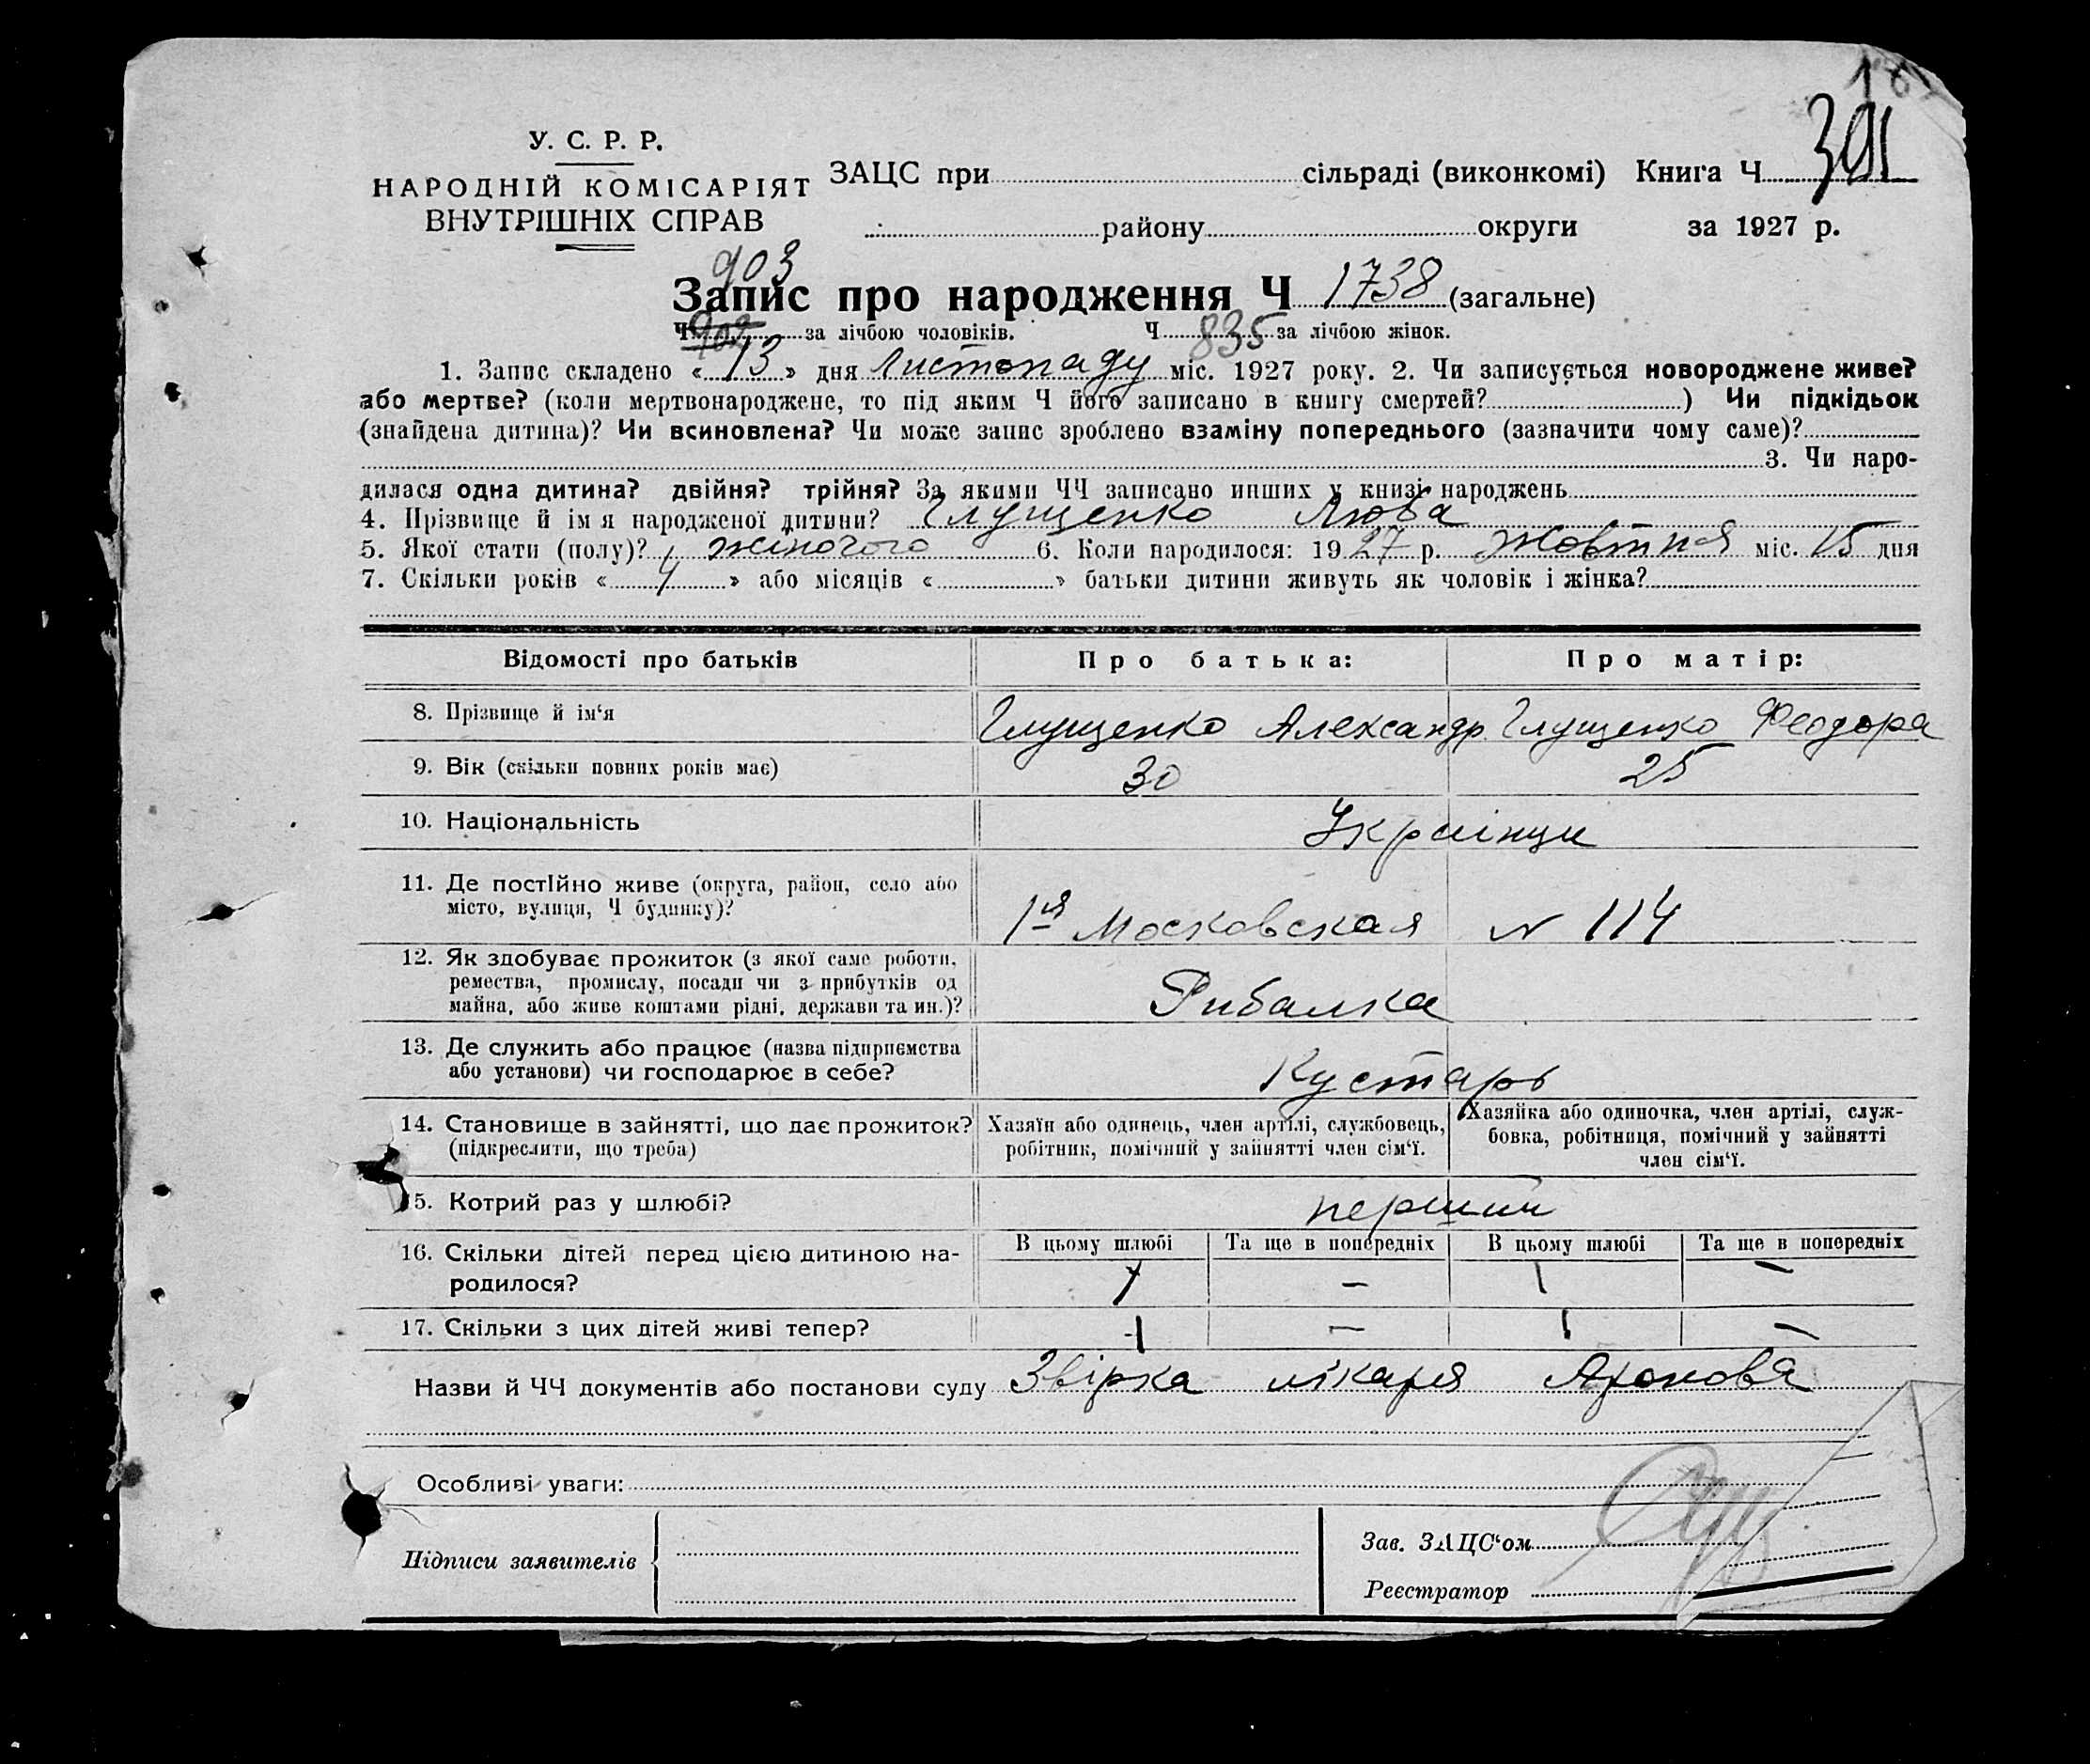 У. С. Р. Р.
НАРОДНІЙ КОМІСАРІЯТ
ВНУТРІШНІХ СПРАВ
ЗАЦС при сільраді (виконкомі) Книга Ч
району округи за 1927 р.
903
Запис про народження Ч 1738 (загальне)
Ч 902 за лічбою чоловіків. Ч 835 за лічбою жінок.
1. Запис складено « 13 » дня Листопаду міс. 1927 року. 2. Чи записується новороджене живе?
або мертве? (коли мертвонароджене, то під яким Ч його записано в книгу смертей? ) Чи підкідьок
(знайдена дитина)? Чи всиновлена? Чи може запис зроблено взаміну попереднього (зазначити чому саме)?
3. Чи наро-
дилася одна дитина? двійня? трійня? За якими ЧЧ записано инших у книзі народжень
4. Прізвище й ім я народженої дитини? Глущенко Люба
5. Якої стати (полу)? жіночого 6. Коли народилося: 19 27 р. Жовтня міс. 15 дня
7. Скільки років « 4 » або місяців « » батьки дитини живуть як чоловік і жінка?
Відомості про батьків Про батька: Про матір:
8. Прізвище й ім‘я Глущенко Александр Глущенко Феодора
9. Вік (скільки повних років має) 30 25
10. Національність Українци
11. Де постійно живе (округа, район, село або
місто, вулиця, Ч будинку)? 1я Московская N 114
12. Як здобуває прожиток (з якої саме роботи,
ремества, промислу, посади чи з прибутків од
майна, або живе коштами рідні, держави та ин.)? Рибалка
13. Де служить або працює (назва підприємства
або установи) чи господарює в себе? Кустарь
14. Становище в зайнятті, що дає прожиток?
(підкреслити, що треба)
Хазяїн або одинець, член артілі, службовець,
робітник, помічний у зайнятті член сім‘ї.
Хазяйка або одиночка, член артілі, служ-
бовка, робітниця, помічний у зайнятті
член сім‘ї.
15. Котрий раз у шлюбі? перший
16. Скільки дітей перед цією дитиною на-
родилося?
В цьому шлюбі Та ще в попередніх В цьому шлюбі Та ще в попередніх
1 — 1 —
17. Скільки з цих дітей живі тепер? 1 — 1 —
Назви й ЧЧ документів або постанови суду Звірка лікаря Аронова
Особливі уваги:
Підписи заявителів
Зав. ЗАЦС‘ом
Реєстратор